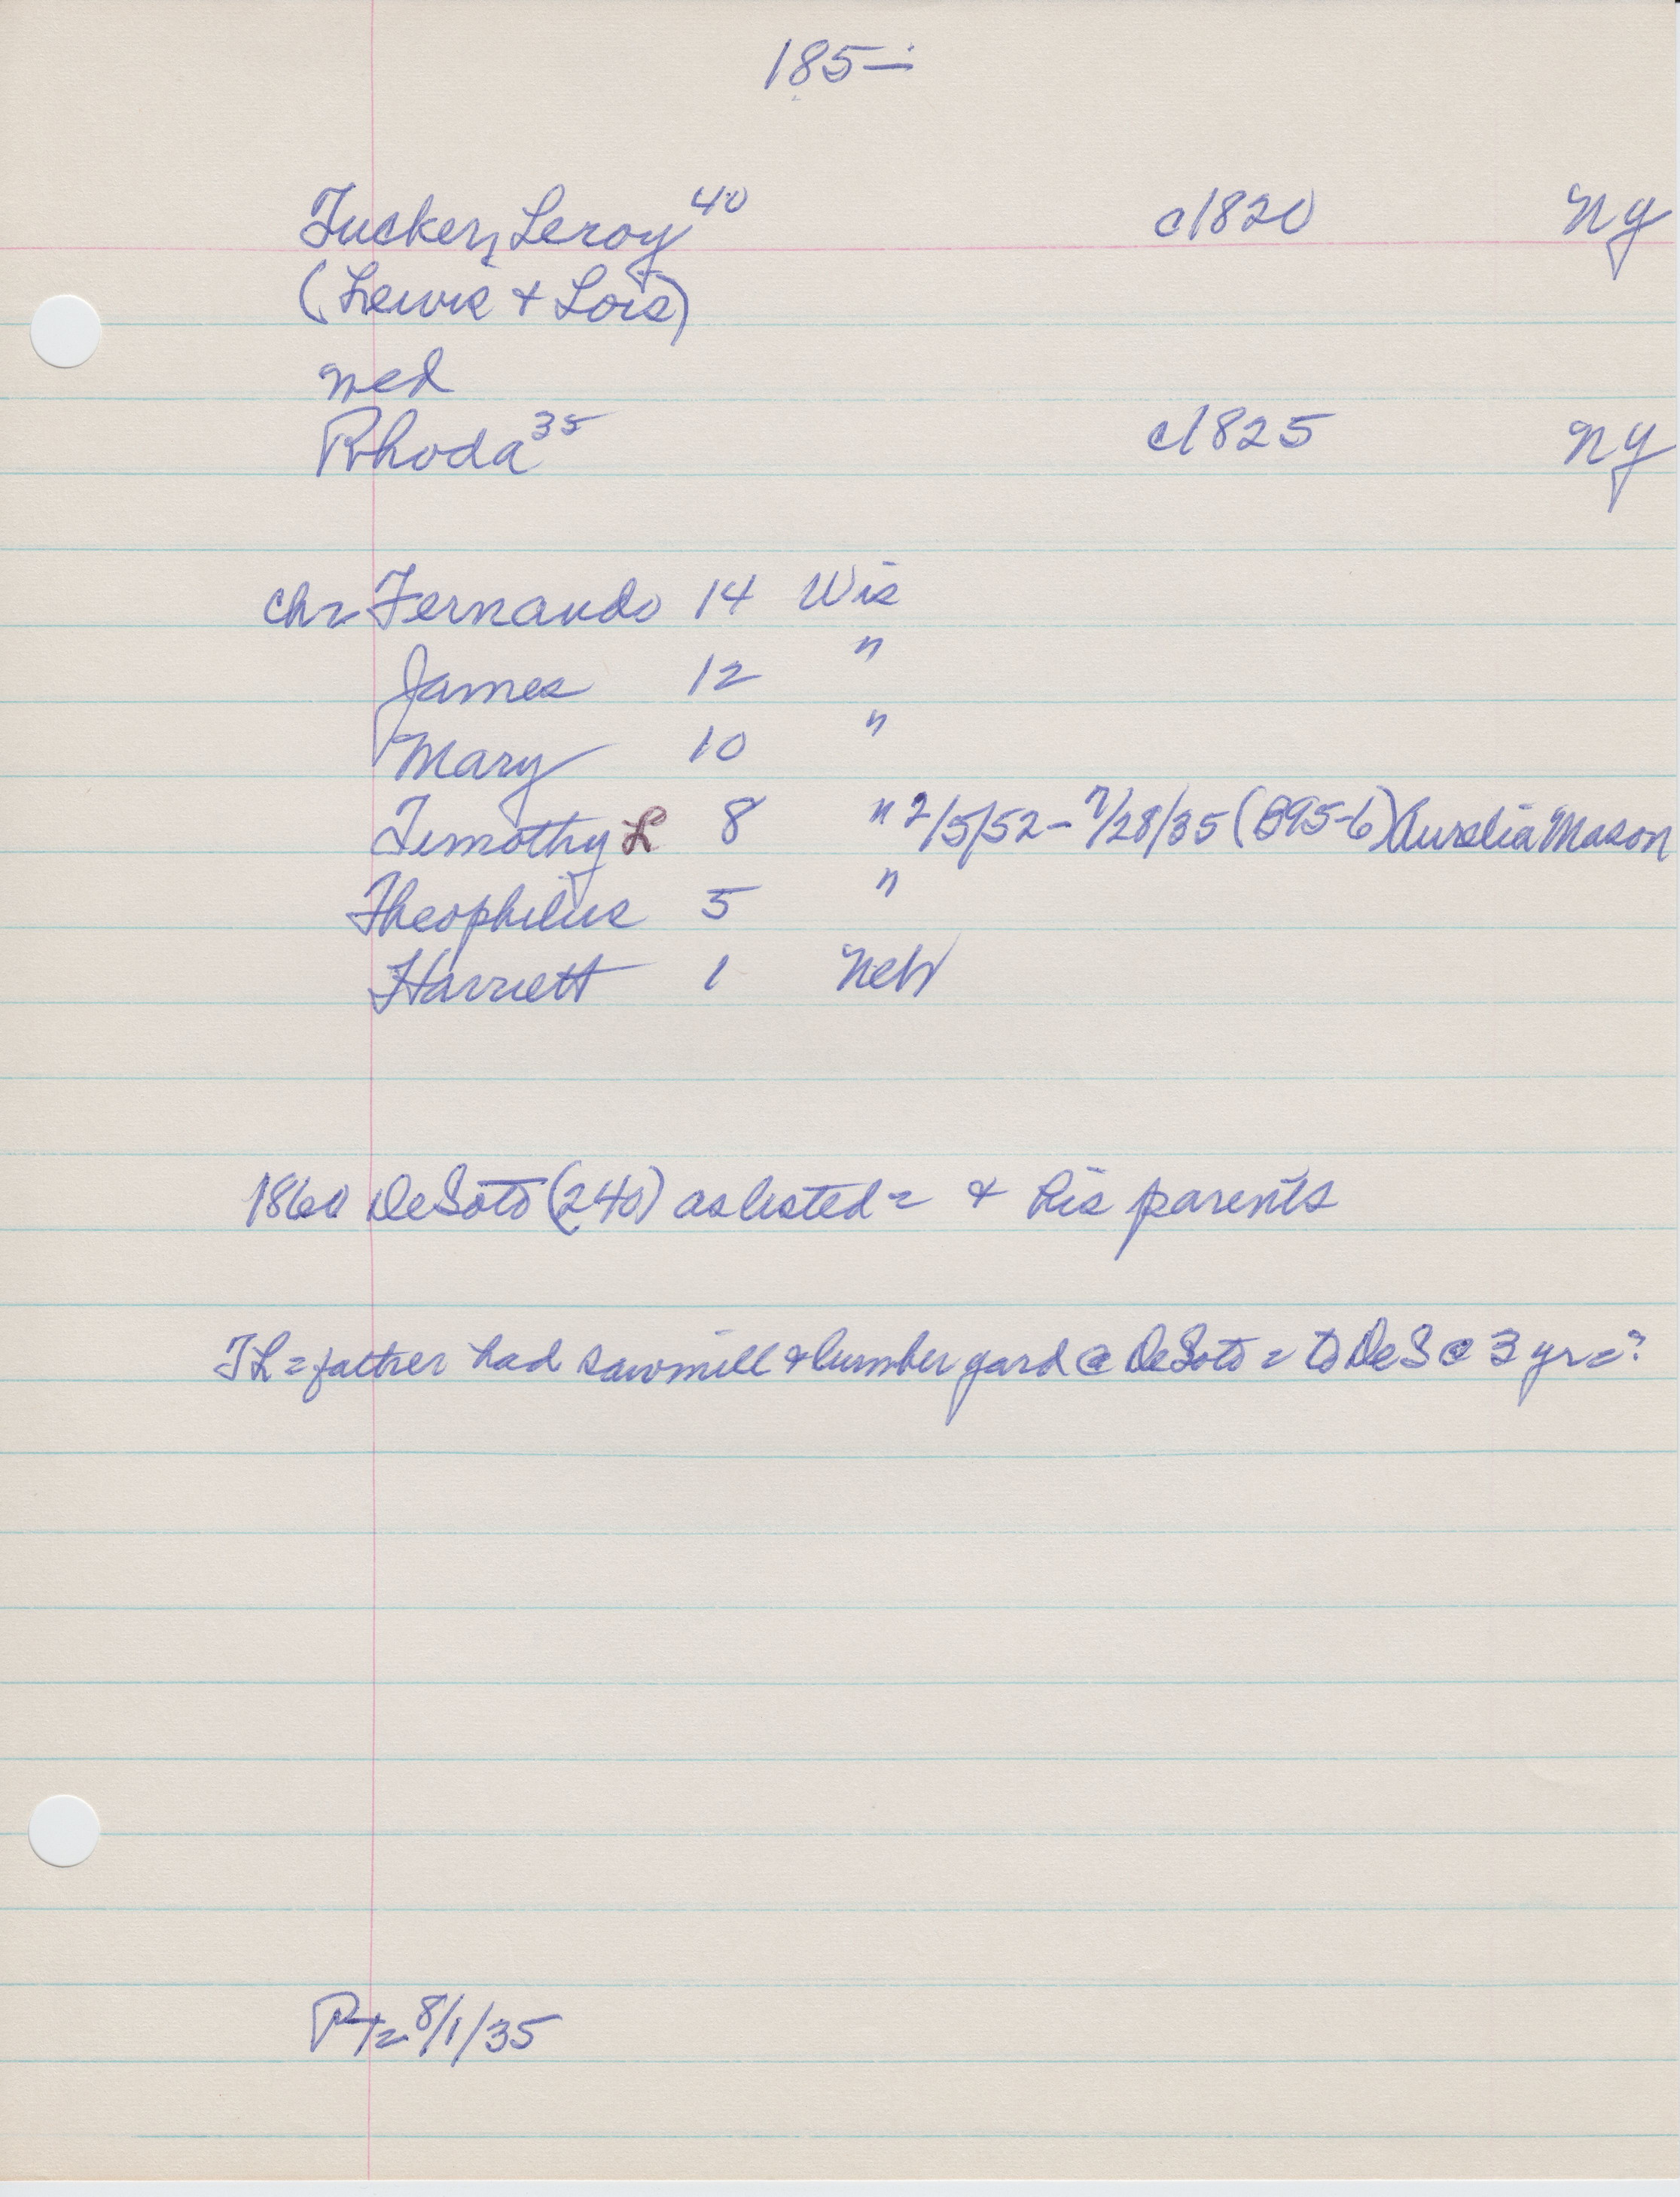 185-
Tucker, Leroy 40 c1820 NY
(Lewis + Lois)
med
Rhoda 35 c1825 NY
ch= Fernando 14 Wis
James 12 "
Mary 10 "
Timothy L 8 " 2/5/52 - 7/28/35 (B95-6) Aurelia Mason
Theophilus 5 "
Harriett 1 Neb
1860 DeSoto (240) as listed = + his parents
TL = father had sawmill & lumber yard @ DeSoto = to DeS @ 3 yr=?
PT= 8/1/35